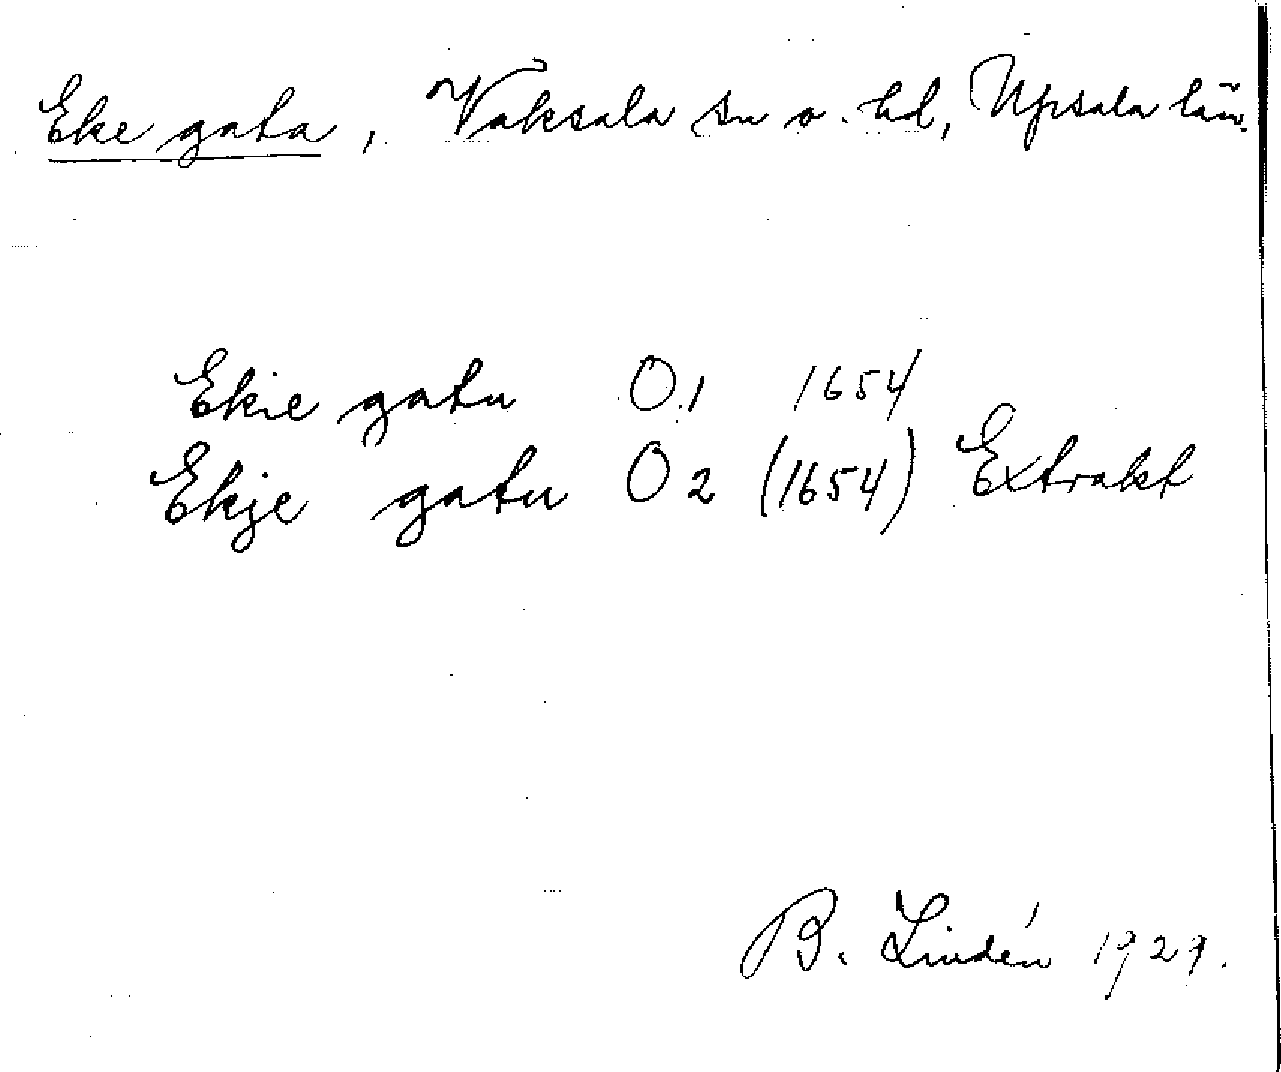 Eke gata, Vaksala sn o. hd, Upsala län.
Ekie gatu O.1 1654
Ekje gatu O2 (1654) Extrakt
B. Lindén 1929.